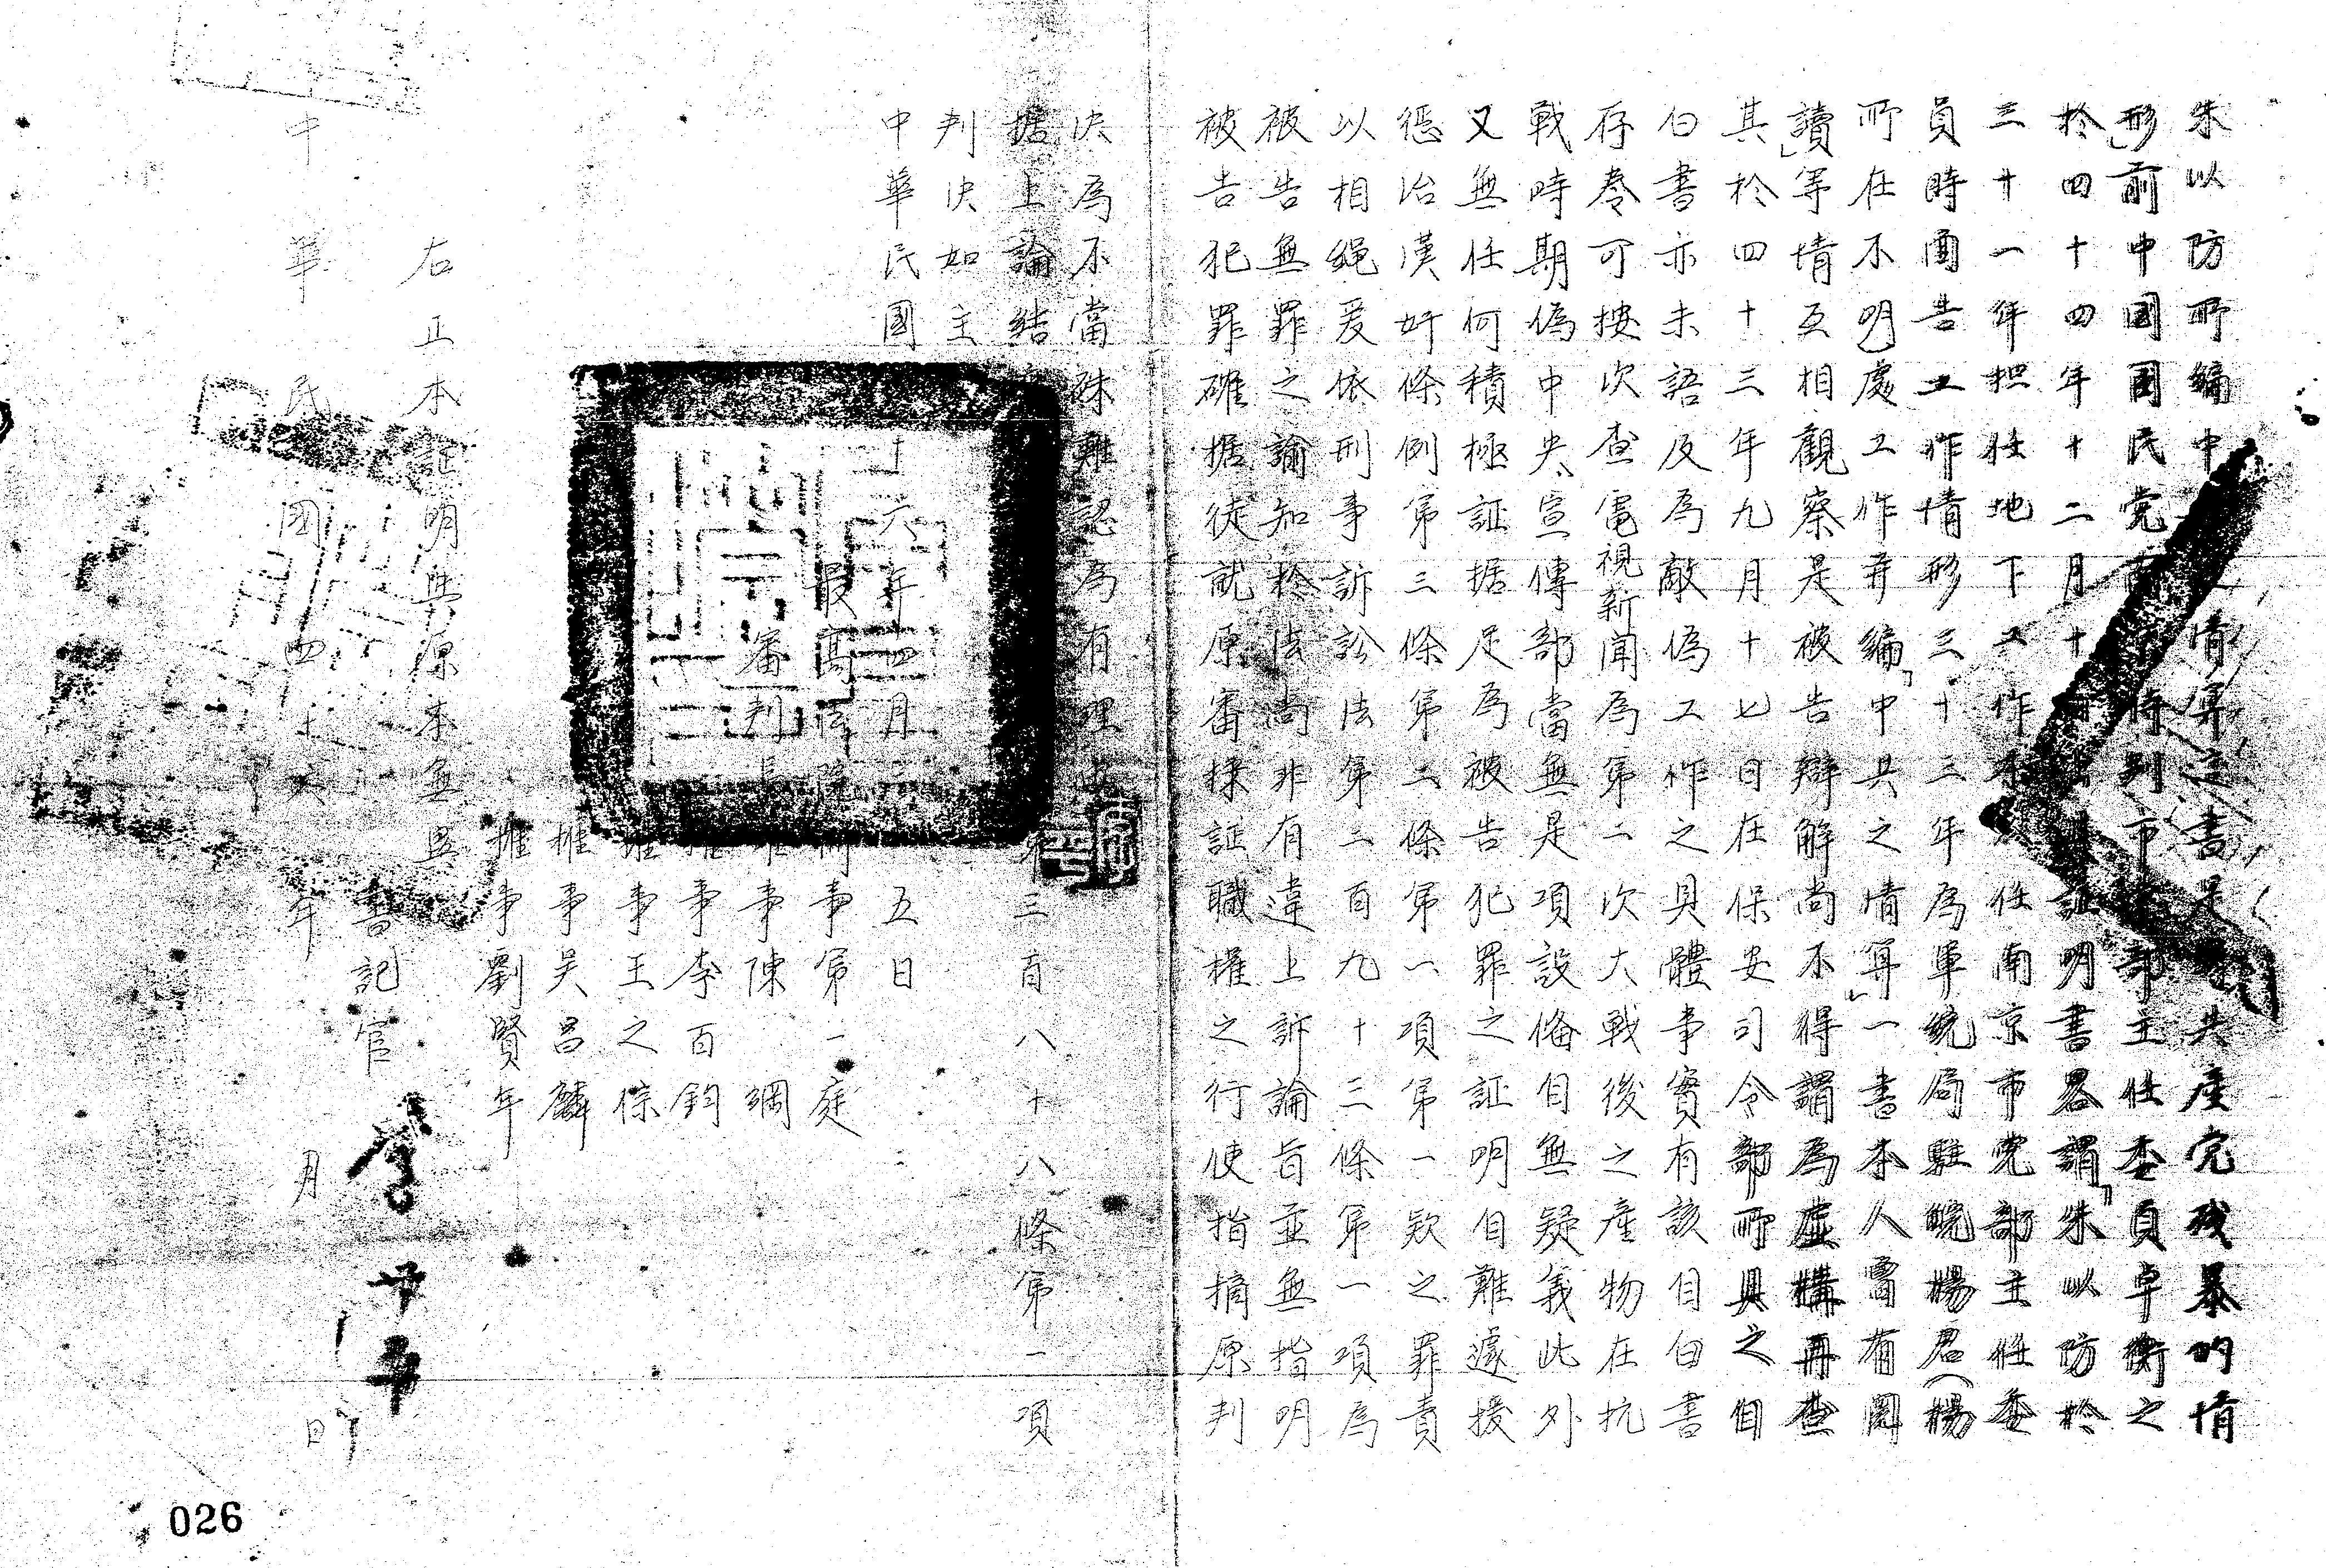 朱以防所編中情等這書是共產党残暴的情
形」前中國國民党南京特别市党部主任委員卓衡之
於四十四年十二月十日証明書畧謂「朱以防於
三十一年担任地下工作本人任南京市党部主任委
員時面告工作情形三十三年為軍統局駐皖楊君(楊
所在不明)處工作并編「中共之情算」一書本人曾有閱
讀」等情互相觀察是被告辯解尚不得謂為虛構再查
其於四十三年九月十七日在保安司令部所具之自
白書亦未語及為敵偽工作之具體事實有該自白書
存卷可按次查電視新聞為第二次大戰後之產物在抗
戰時期偽中央宣傳部當無是項設俻自無疑義此外
又無任何積極証据足為被告犯罪之証明自難遽援
懲治漢奸條例第三條第二條第一項第一款之罪責
以相繩爰依刑事訴訟法第二百九十三條第一項為
被告無罪之諭知於法尚非有違上訴論旨並無指明
被告犯罪確据徒就原審採証職權之行使指摘原判
決為不當殊難認為有理由
据上論結第三百八十八條第一項
判決如主
中華民國十六年四月五日
最高法院第一庭
審判長事陳綱
推事李百鈞
推事王之倧
推事吳昌麟
推事劉賢年
右正本証明與原本無異
書記官
中華民國四十六年月日
026